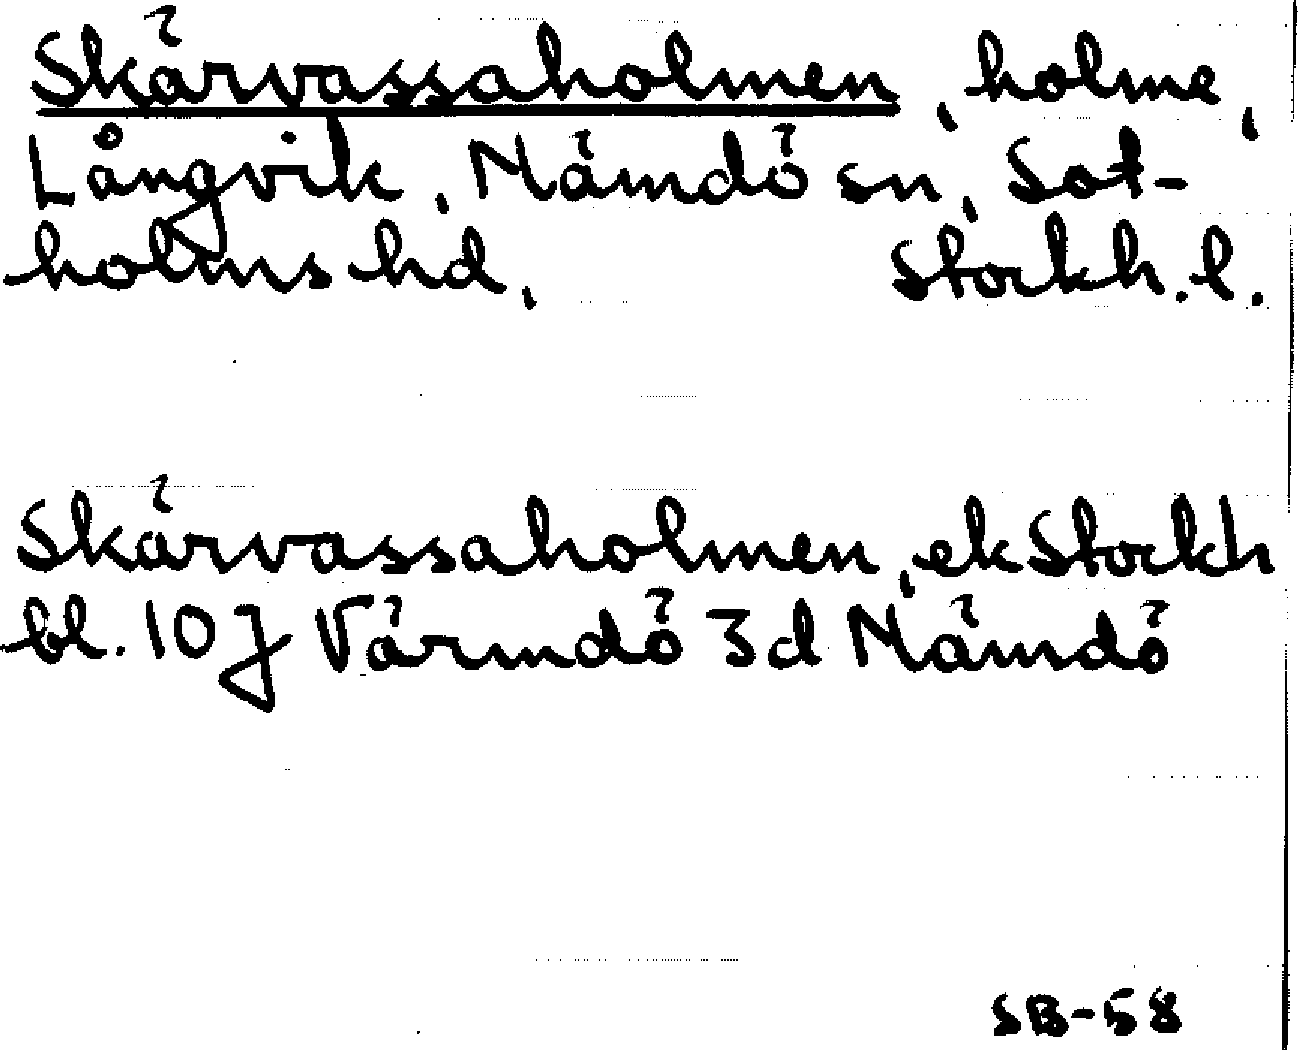 Skärvassaholmen, holme,
Långvik, Nämdö sn, Sot-
holms hd, Stockh. l.
Skärvassaholmen, ek Stockh
bl. 10J Värmdö 3d Nämdö
SB-58